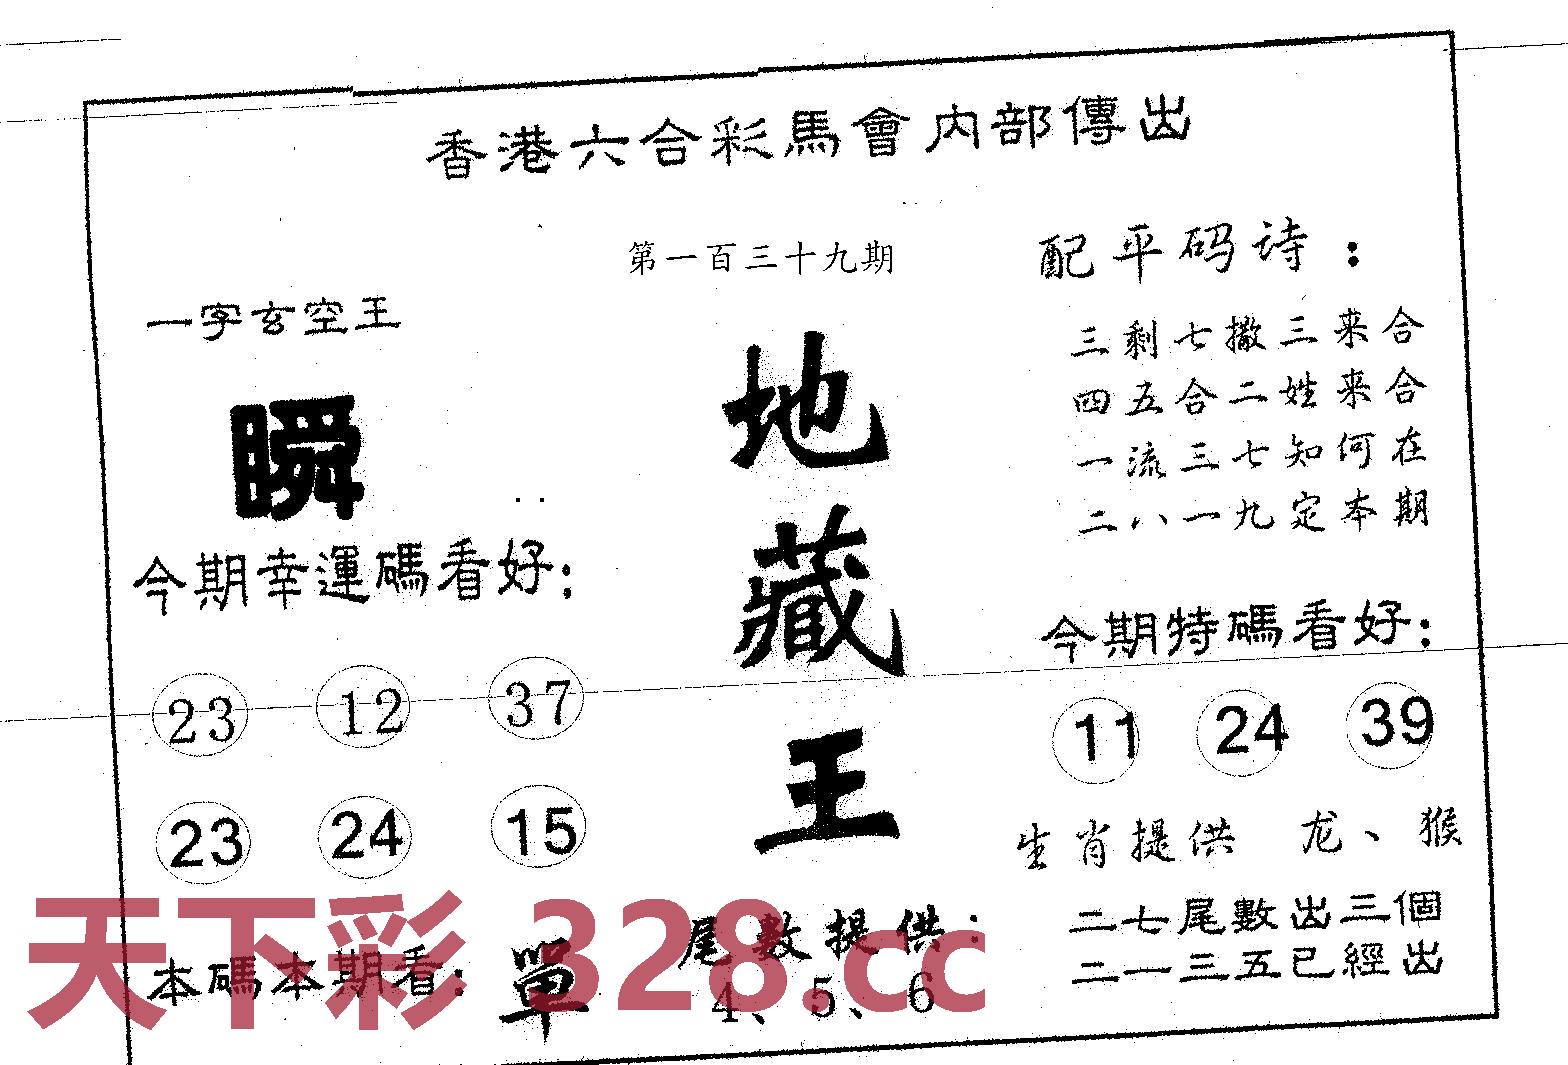 香港六合彩馬會内部傳出
第一百三十九期
一字玄空王
瞬
今期幸運碼看好:
23 12 37
23 24 15
本碼本期看: 單
地藏王
尾數提供:
4、5、6
配平码诗:
三剩七撒三来合
四五合二姓来合
一流三七知何在
二八一九定本期
今期特碼看好:
11 24 39
生肖提供 龙、猴
二七尾數出三個
二一三五已經出
天下彩 328.cc